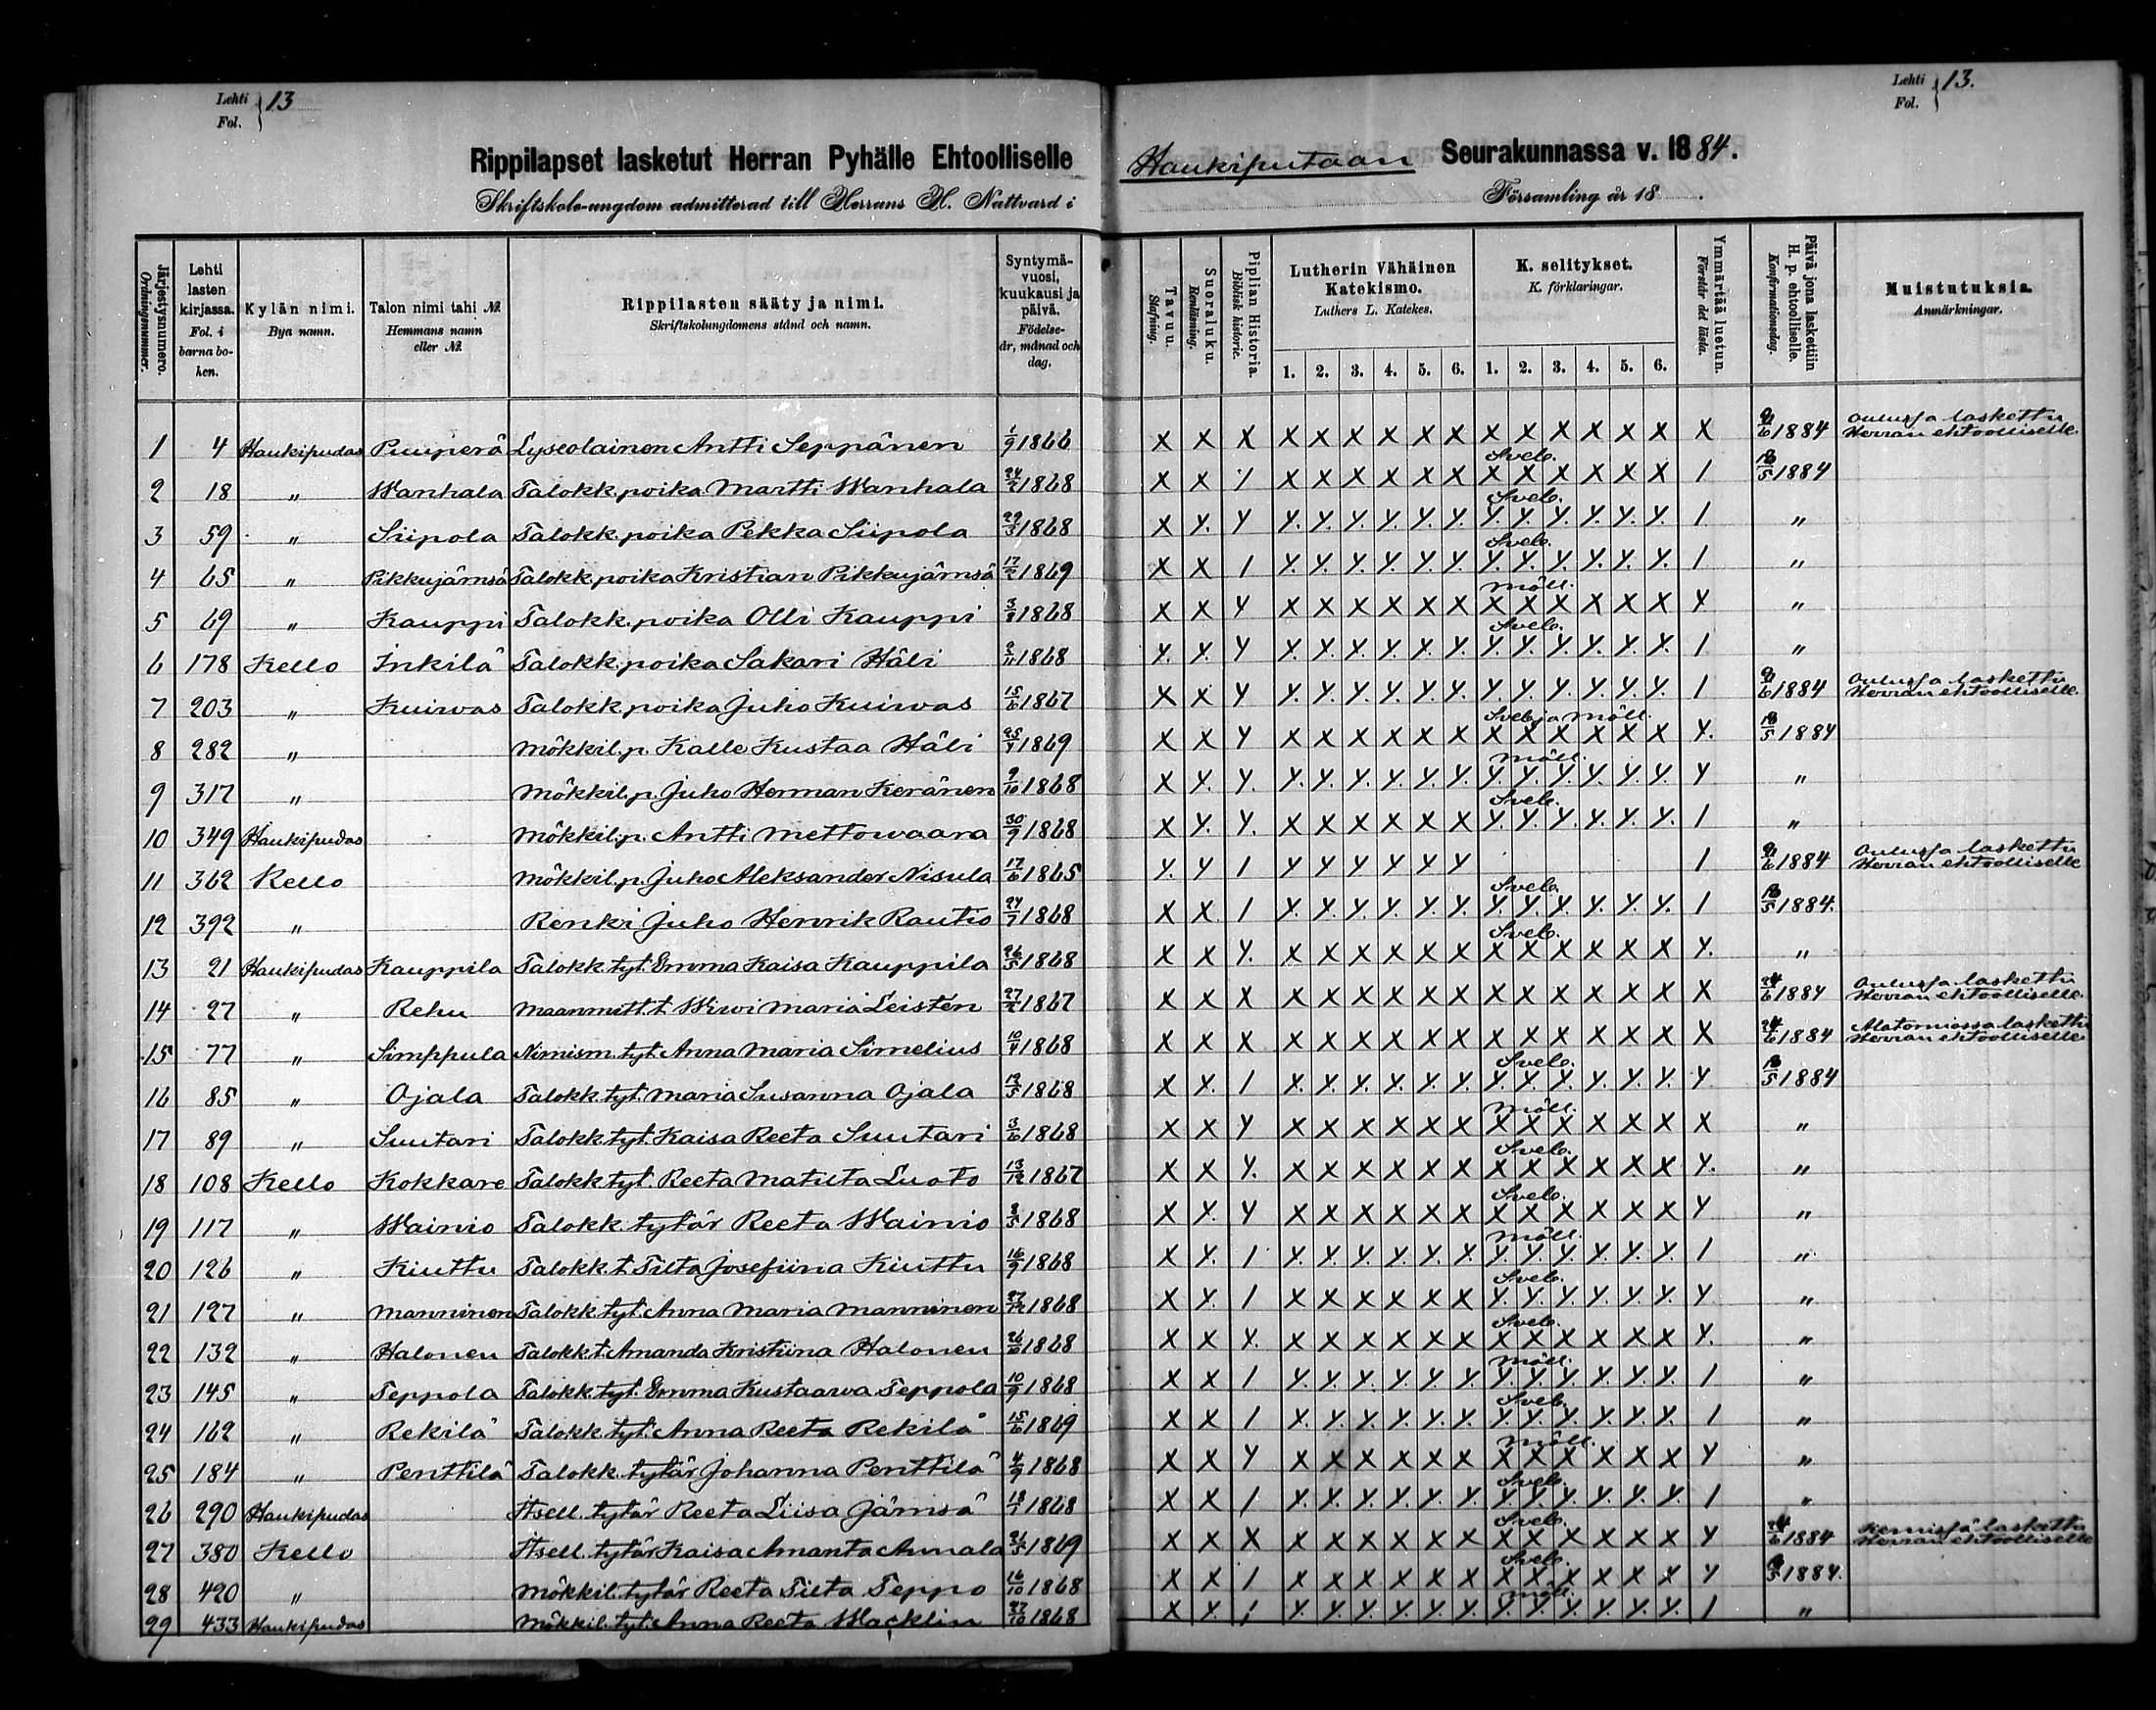 Lehti
Fol. } 13
Rippilapset lasketut Herran Pyhälle Ehtoolliselle
Skriftskole-ungdom admitterad till Herrans H. Nattvard i
Lehti
Fol. } 13.
Haukiputaan Seurakunnassa v. 1884.
Församling år 18 .
Järjestysnumero. Ordningsnummer.
Lehti lasten kirjassa. Fol. i barna boken.
Kylän nimi. Bya namn.
Talon nimi tahi №. Hemmans namn eller №.
Rippilasten sääty ja nimi. Skriftskolungdomens stånd och namn.
Syntymävuosi, kuukausi ja päivä. Födelseår, månad och dag.
Tavuu. Stafning.
Suoraluku. Renläsning.
Piplian Historia. Biblisk historie.
Lutherin Vähäinen Katekismo. Luthers L. Katekes. 1. 2. 3. 4. 5. 6.
K. selitykset. K. förklaringar. 1. 2. 3. 4. 5. 6.
Ymmärtää luetun. Förstår det lästa.
Päivä jona laskettiin H. p. ehtoolliselle. Konfirmationsdag.
Muistutuksia. Anmärkningar.
1 4 Haukipudas Puuperä Lyseolainen Antti Seppänen 1/9 1866 X X X X X X X X X X X X X X X X 1884 Oulussa laskettu Herran ehtoolliselle
2 18 " Wanhala Talokk. poika Martti Wanhala 24/2 1868 Sveb. 18/5 1884
3 59 " Siipola Talokk. poika Pekka Siipola 29/3 1868 Sveb. "
4 65 " Pikkujämsä Talokk. poika Kristian Pikkujämsä 17/2 1869 Sveb. "
5 69 " Kauppi Talokk. poika Olli Kauppi 3/8 1868 Möll. "
6 178 Kello Inkilä Talokk. poika Sakari Häli 2/11 1868 Sveb. "
7 203 " Kuiwas Talokk. poika Juho Kuiwas 15/6 1867 1884 Oulussa laskettu Herran ehtoolliselle
8 282 " Mökkil. p. Kalle Kustaa Häli 1869 Sveb ja Möll. 18/5 1884
9 317 " Mökkil. p. Juho Herman Keränen 9/10 1868 Möll. "
10 349 Haukipudas Mökkil. p. Antti Mettowaara 30/9 1868 Sveb. "
11 362 Kello Mökkil. p. Juho Aleksander Nisula 17/6 1865 1884 Oulussa laskettu Herran ehtoolliselle
12 392 " Renki Juho Henrik Rautio 24/7 1868 Sveb. 18/5 1884.
13 21 Haukipudas Kauppila Talokk. tyt. Emma Kaisa Kauppila 26/5 1868 Sveb. "
14 27 " Rehu Maanmitt. t. Wiwi Maria Leistén 27/2 1867 24/6 1884 Oulussa laskettu Herran ehtoolliselle
15 77 " Simppula Nimism. tyt. Anna Maria Simelius 10/4 1868 24/6 1884 Alatorniossa laskettu Herran ehtoolliselle
16 85 " Ojala Talokk. tyt. Maria Susanna Ojala 1868 Sveb. 18/5 1884
17 89 " Suutari Talokk. tyt. Kaisa Reeta Suutari 3/6 1868 Möll. "
18 108 Kello Kokkare Talokk. tyt. Reeta Matilta Luoto 13/12 1867 Sveb. "
19 117 " Wainio Talokk. tytär Reeta Wainio 8/5 1868 Sveb. "
20 126 " Kiuttu Talokk. t. Tilta Josefiina Kiuttu 16/9 1868 Möll. "
21 127 " Manninen Talokk. tyt. Anna Maria Manninen 27/12 1868 Sveb. "
22 132 " Halonen Talokk. t. Amanda Kristiina Halonen 26/6 1868 Sveb. "
23 145 " Teppola Talokk. tyt. Emma Kustaawa Teppola 10/9 1868 Möll. "
24 162 " Rekilä Talokk. tyt. Anna Reeta Rekilä 15/6 1869 Sveb. "
25 184 " Penttilä Talokk. tytär Johanna Penttilä 4/9 1868 Möll. "
26 290 Haukipudas Itsell. tytär Reeta Liisa Jämsä 18/1 1868 Sveb. "
27 380 Kello Itsell. tytär Kaisa Amanta Annala 1869 Sveb. 24/6 1884 Kemissä laskettu Herran ehtoolliselle
28 420 " Mökkil. tytär Reeta Tilta Teppo 16/10 1868 Sveb. 18/5 1884.
29 433 Haukipudas Mökkil. tyt. Anna Reeta Macklin 27/10 1868 Möll. "